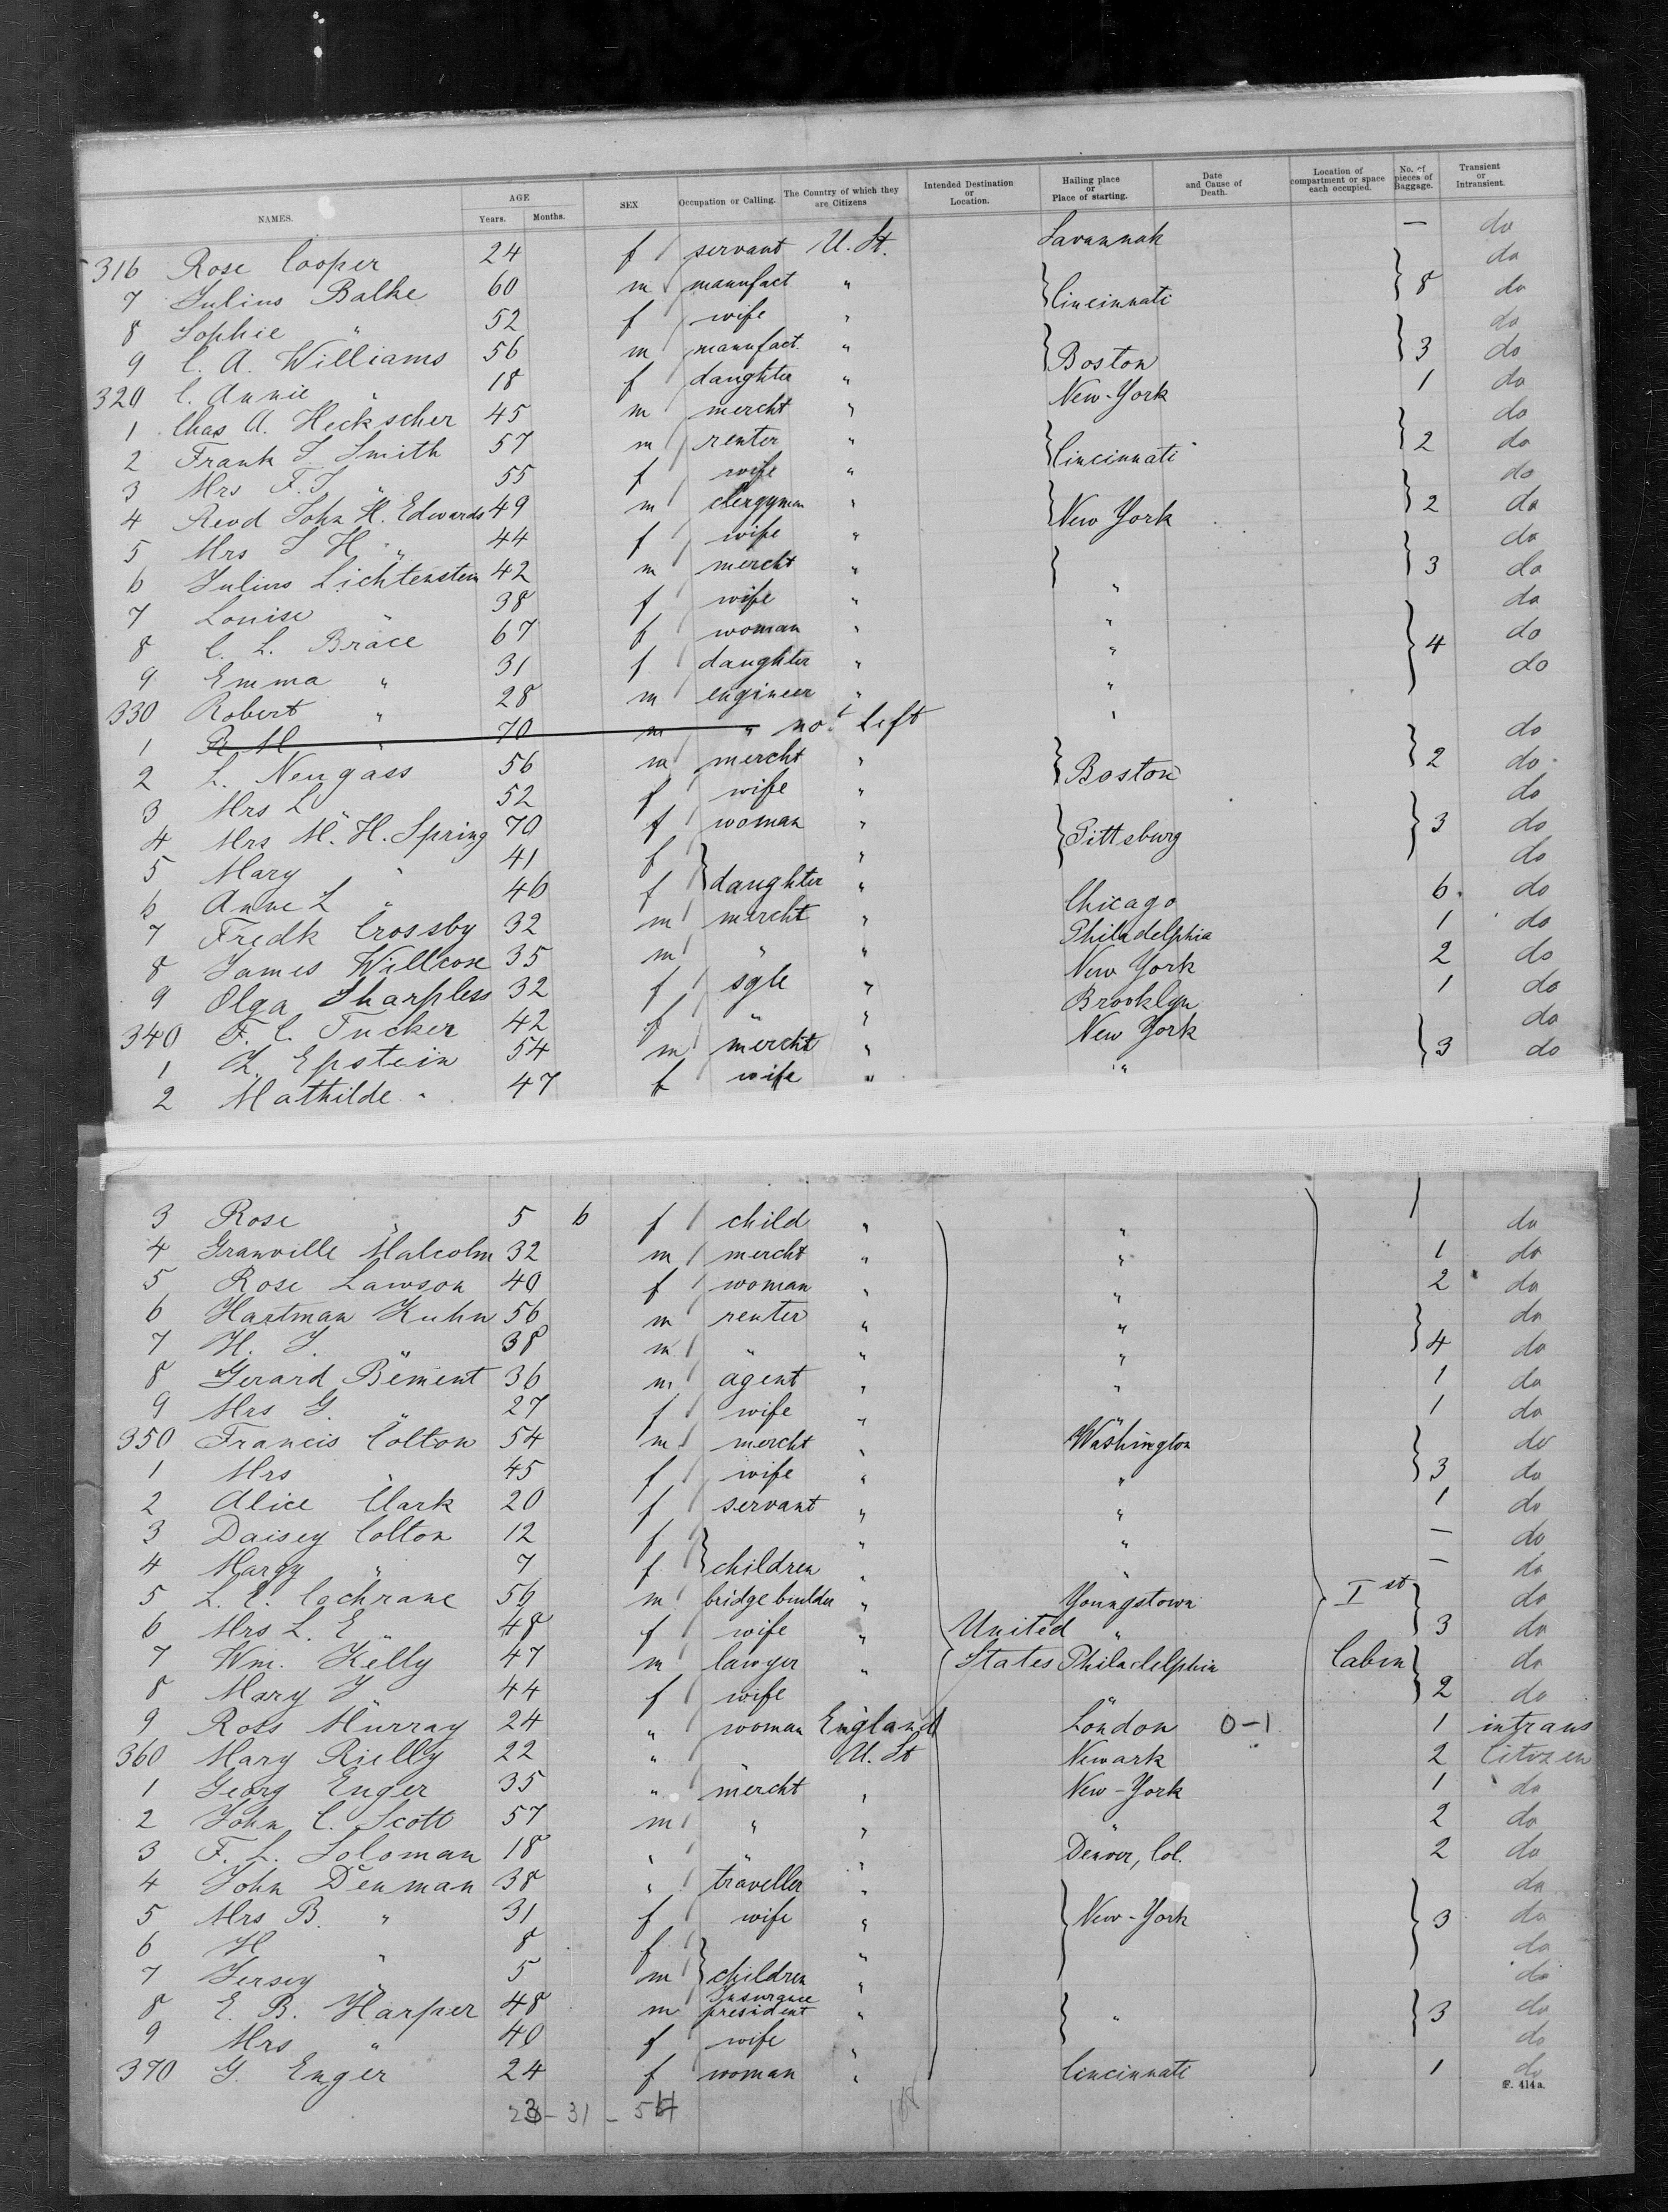 NAMES. AGE Years. Months. SEX Occupation or Calling. The Country of which they are Citizens Intended Destination or Location. Hailing place or Place of starting. Date and Cause of Death. Location of compartment or space each occupied. No. of pieces of Baggage. Transient or Intransient.
316 Rose Cooper 24 f servant U. St. Savannah — do
7 Julius Balke 60 m manufact " } Cincinnati } 8 do
8 Sophie " 52 f wife " do
9 C. A. Williams 56 m manufact. " } Boston } 3 do
320 C. Annie " 18 f daughter " do
1 Chas A. Heckscher 45 m mercht " New-York 1 do
2 Frank J Smith 57 m renter " } Cincinnati } 2 do
3 Mrs F. J " 55 f wife " do
4 Revd John H. Edwards 49 m clergyman " } New York } 2 do
5 Mrs J H " 44 f wife " do
6 Julius Lichtenstein 42 m mercht " } " } 3 do
7 Louise " 38 f wife " do
8 C. L. Brace 67 f woman " " } 4 do
9 Emma " 31 f daughter " " do
330 Robert " 28 m engineer " " do
1 R M " 70 m " not left
2 L. Neugass 56 m mercht " } Boston } 2 do
3 Mrs L " 52 f wife " do
4 Mrs M. H. Spring 70 f woman " } Pittsburg } 3 do
5 Mary " 41 f } daughter " do
6 Anne L " 46 f " do
7 Fredk Crossby 32 m mercht " Chicago 6. do
8 James Willcox 35 m " " Philadelphia 1 do
9 Olga Sharpless 32 f sgle " New York 2 do
340 F. C. Tucker 42 f " " Brooklyn 1 do
1 L. Epstein 54 m mercht " New York } 3 do
2 Mathilde " 47 f wife " " do
3 Rose " 5 6 f child " " do
4 Granville Malcolm 32 m mercht " " 1 do
5 Rose Lawson 40 f woman " " 2 do
6 Hartman Kuhn 56 m renter " " } 4 do
7 H. J. " 38 m " " " do
8 Gerard Bement 36 m agent " " 1 do
9 Mrs G. " 27 f wife " " 1 do
350 Francis Colton 54 m mercht " Washington } 3 do
1 Mrs " 45 f wife " " do
2 Alice Clark 20 f servant " " 1 do
3 Daisey Colton 12 f } children " " — do
4 Margy " 7 f " " — do
5 L. E. Cochrane 56 m bridge builder " Youngstown Ist } 3 do
6 Mrs L. E " 48 f wife " United " do
7 Wm. Kelly 47 m lawyer " States Philadelphia Cabin } 2 do
8 Mary J " 44 f wife " do
9 Ross Murray 24 " woman England London 0-1 1 intrans
360 Mary Rielly 22 " " U. St Newark 2 Citozen
1 Georg Enger 35 " mercht " New-York 1 do
2 John C. Scott 57 m " " " 2 do
3 F. L. Soloman 18 " " " Denver, Col. 2 do
4 John Denman 38 " traveller " } New-York } 3 do
5 Mrs B. " 31 f wife " do
6 H " 8 f } children " do
7 Jersey " 5 m " do
8 E. B. Harper 48 m Insurance president " } " } 3 do
9 Mrs " 40 f wife " do
370 G. Enger 24 f woman " Cincinnati 1 do
F. 414a.